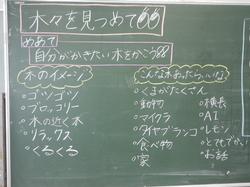 木々を見つめて
めあて
自分がかきたい木をかこう
木のイメージ
・ゴツゴツ
・ブロッコリー
・木の近く木
・リラックス
・くるくる
こんな木あったらいいな
・くまがたくさん
・動物
・マイクラ
・ダイヤブランコ
・食べ物
・家
・横長
・AI
・レモン
・とてもでかい
・お話